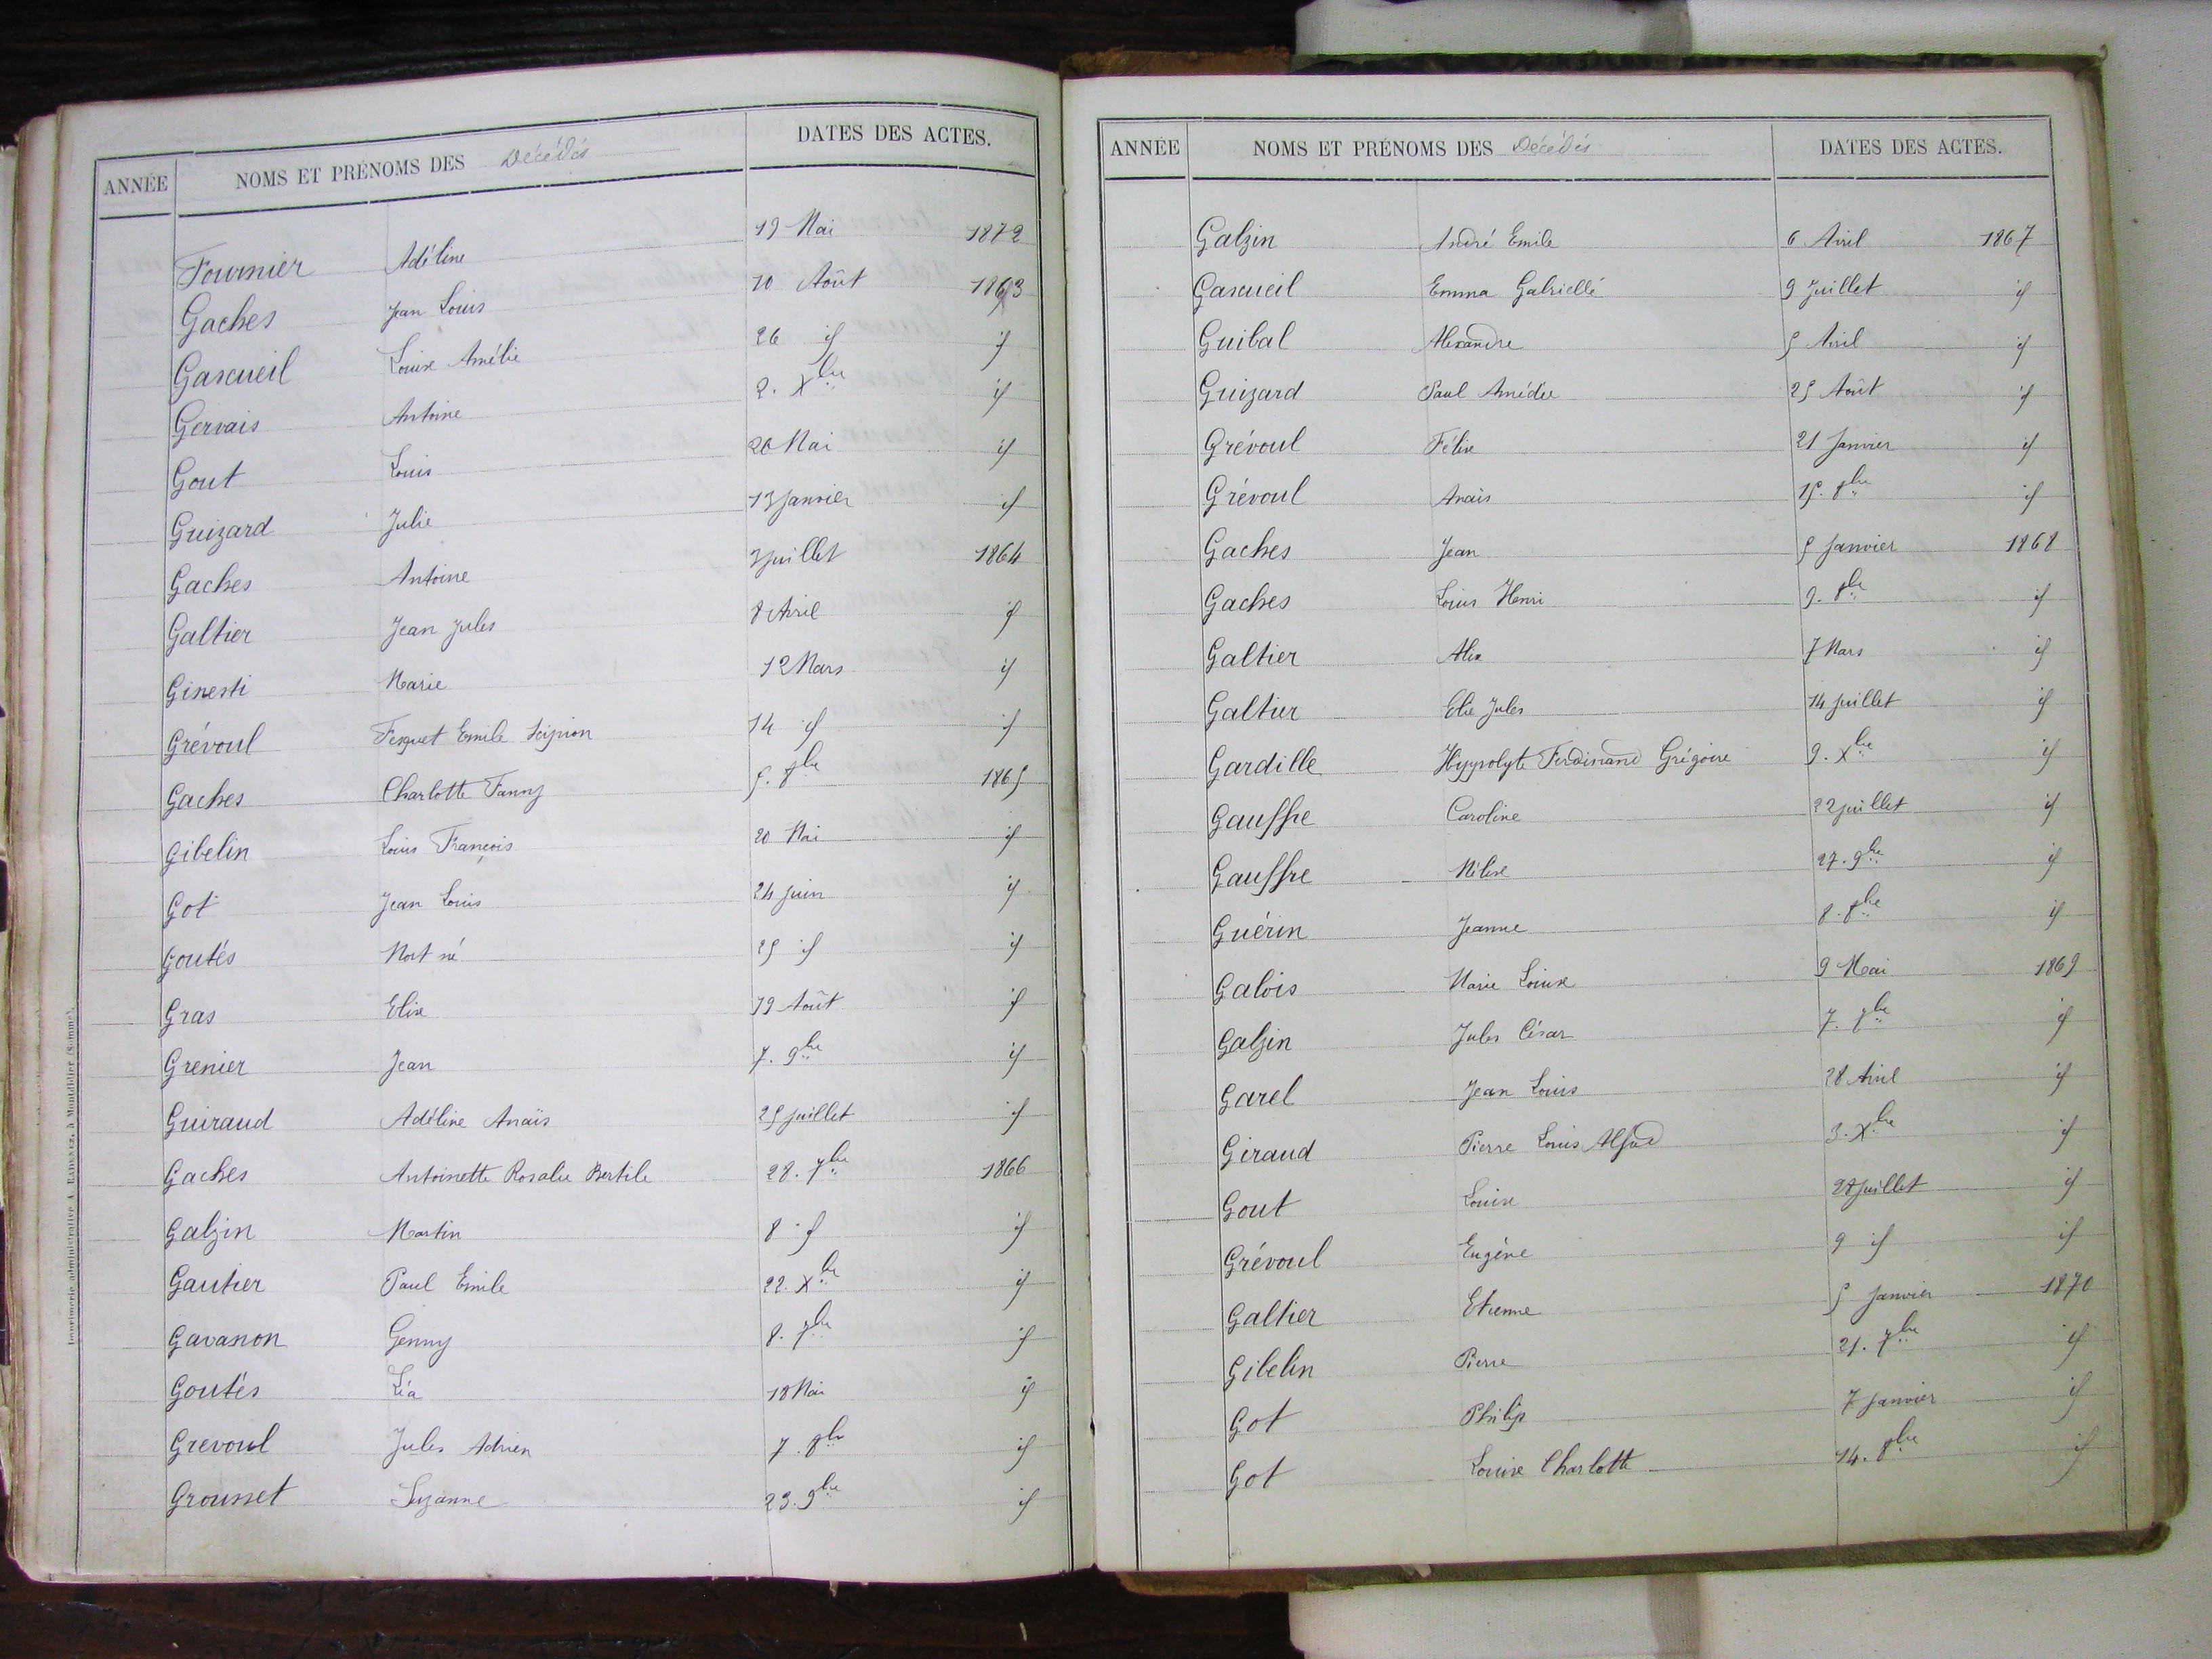 ANNÉE NOMS ET PRÉNOMS DES Décédés DATES DES ACTES.
Fournier Adéline 19 Mai 1872
Gaches Jean Louis 10 Août 1863
Gascueil Louise Amélie 26 id id
Gervais Antoine 2. Xbre id
Gout Louis 26 Mai id
Guizard Julie 13 Janvier id
Gaches Antoine 3 juillet 1864
Galtier Jean Jules 8 Avril id
Ginesti Marie 12 Mars id
Grévoul Fesquet Emile Scipion 14 id id
Gaches Charlotte Fanny 5. 8bre 1865
Gibelin Louis François 20 Mai id
Got Jean Louis 24 juin id
Goutés Mort né 25 id id
Gras Elise 19 Août id
Grenier Jean 7. 9bre id
Guiraud Adéline Anaïs 25 juillet id
Gaches Antoinette Rosalie Bertile 28. 7bre 1866
Galzin Martin 8 id id
Gautier Paul Emile 22. Xbre id
Gavanon Genny 8. 7bre id
Goutés Léa 18 Mai id
Grevoul Jules Adrien 7. 8bre id
Grousset Suzanne 23. 9bre id
Imprimerie administrative A. à Montdidier (Somme).
ANNÉE NOMS ET PRÉNOMS DES Décédés DATES DES ACTES.
Galzin André Emile 6 Avril 1867
Gascueil Emma Gabrielle 9 Juillet id
Guibal Alexandre 5 Avril id
Guizard Paul Amédée 25 Août id
Grévoul Félix 21 Janvier id
Grévoul Anaïs 15. 8bre id
Gaches Jean 5 Janvier 1868
Gaches Louis Henri 9. 8bre id
Galtier Alix 7 Mars id
Galtier Elie Jules 14 juillet id
Gardille Hyppolyte Ferdinand Grégoire 9. Xbre id
Gauffre Caroline 22 juillet id
Gauffre Mélise 27. 9bre id
Guérin Jeanne 8. 8bre id
Galois Marie Louise 9 Mai 1869
Galzin Jules César 7. 7bre id
Garel Jean Louis 28 Avril id
Giraud Pierre Louis Alfred 3. Xbre id
Gout Louise 28 juillet id
Grévoul Eugène 9 id id
Galtier Etienne 5 Janvier 1870
Gibelin Pierre 21. 7bre id
Got Philip 7 Janvier id
Got Louise Charlotte 14. 8bre id